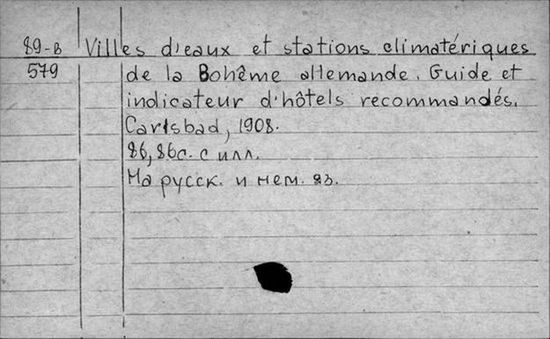 89-В Villes d'eaux et stations climatériques
579 de la Bohême allemande. Guide et
indicateur d'hôtels recommandés.
Carlsbad, 1908.
86, 86с. с илл.
На русск. и нем. яз.